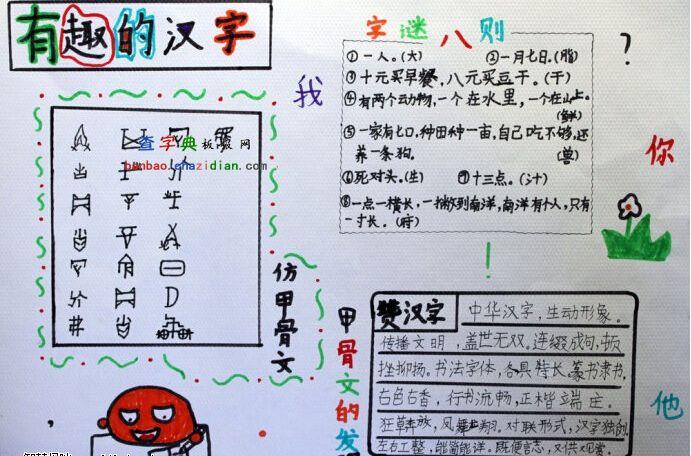 有趣的汉字
字谜八则
①一人。(大) ②一月七日。(脂)
③十元买早餐，八元买豆干。(干)
④有两个动物，一个在水里，一个在山上。
(鲜)
⑤一家有七口，种田种一亩，自己吃不够，还
养一条狗。
(兽)
⑥死对头。(生) ⑦十三点。(汁)
⑧一点一横长，一撇到南洋，南洋有个人，只有
一寸长。(府)
?
我
你
他
!
查字典板报网
banbao.chazidian.com
仿甲骨文
甲骨文的发
赞汉字
中华汉字，生动形象。
传播文明，盖世无双。连缀成句，
挫抑扬。书法字体，各具特长。篆书隶书，
古色古香，行书流畅，正楷端庄。
狂草奔放，风翔。对联形式，汉字独创
左右工整，能简能洋。既便言志，又供观赏。